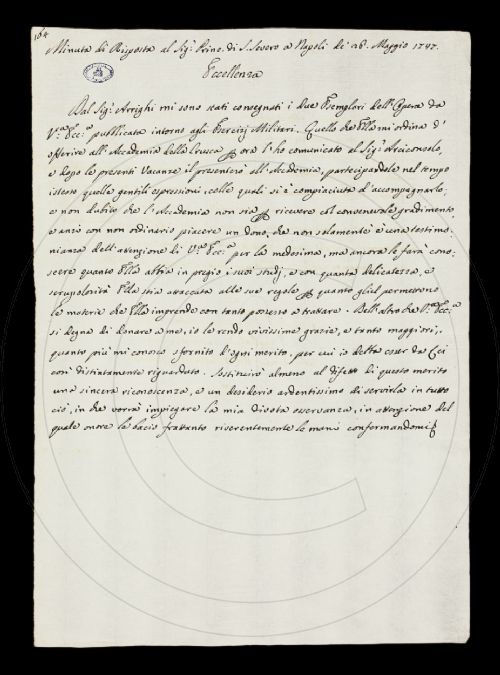 164
Minuta di Risposta al Sig.r Princ. di S. Severo a Napoli de 26. Maggio 1747.
Eccellenza
Dal Sig.r Arrighi mi sono stati consegnati i due Esemplari dell'Opera da
V.ra Ecc.a pubblicata intorno agli Esercizj Militari. Quello che Ella mi ordina d'
offerire all'Accademia della Crusca per ora l'ho comunicato al Sig.r Arciconsolo,
e dopo le presenti Vacanze il presenterò all'Accademia, partecipandole nel tempo
istesso quelle gentili espressioni, colle quali si è compiaciuta d'accompagnarlo;
e non dubito che l'Accademia non sia per ricevere col convenevole gradimento,
e anzi con non ordinario piacere un dono, che non solamente è una testimo-
nianza dell'attenzione di V.ra Ecc.a per la medesima, ma ancora le farà cono-
scere quanto Ella abbia in pregio i suoi studj, e con quanta delicatezza, e
scrupolosità Ella stia attaccata alle sue regole per quanto gliel permettono
le materie che Ella imprende con tanto possesso a trattare. Dell'altro che V.ra Ecc.a
si degna di donare a me, io le rendo vivissime grazie, e tanto maggiori,
quanto più mi conosco sfornito d'ogni merito, per cui io debba esser da Lei
così distintamente riguardato. Sostituirò almeno al difetto di questo merito
una sincera riconoscenza, e un desiderio ardentissimo di servirla in tutto
ciò, in che vorrà impiegare la mia divota osservanza, in attenzione del
quale onore le bacio frattanto riverentemente le mani confermandomi